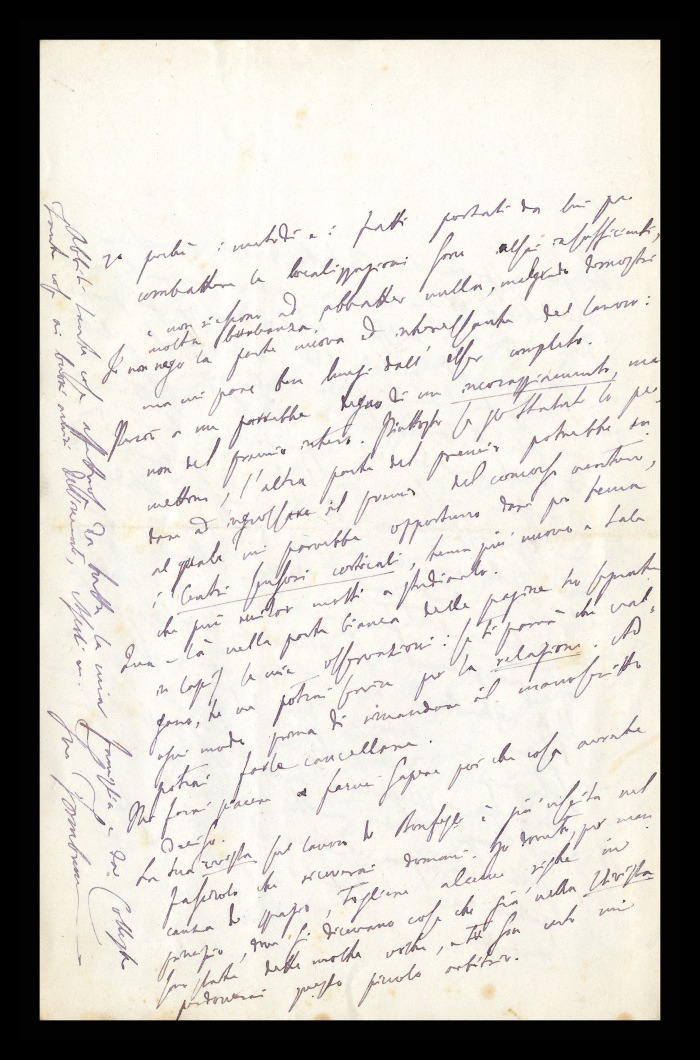 2º perchè i metodi e i fatti portati da lui per
combattere le localizzazioni sono assai insufficienti,
e non riescono ad abbatter nulla, malgrado dimostri
molta burbanza.
Io non nego la parte nuova ed interessante del lavoro:
ma mi pare ben lungi dall'esser completo.
Perciò a me parrebbe degno di un incoraggiamento, ma
non del premio intero. Piuttosto se gli statuti lo per-
mettono, l'altra parte del premio potrebbe an
dare ad ingrossare il premio del concorso venturo,
al quale mi parrebbe opportuno dare per tema
i Centri sensori corticali, tema più nuovo e tale
che può invitar molti a studiarlo.
Qua e là nella parte bianca delle pagine ho segnato
in lapis le mie osservazioni: se ti parrà che val-
gano, te ne potrai servire per la relazione. Ad
ogni modo prima di rimandare il manoscritto
potrai farle cancellare.
Mi farai piacere a farmi sapere poi che cosa avrete
deciso.
La tua rivista sul lavoro di Bonfigli è più visita nel
fascicolo che riceverai domani. Ho dovuto, per man
canza di spazio, togliere alcune righe in
principio, dove si dicevano cose che già nella Rivista
son state dette molte volte, e tu son certo mi
perdonerai questo piccolo arbitrio.
Abbiti tante cose affettuose da tutta la mia famiglia e dai Colleghi
tante cose ai buoni amici
Tamburini